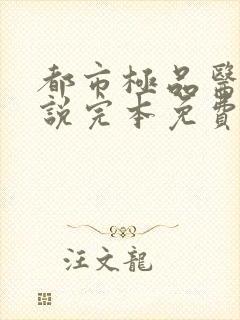 都市極品醫
說完本免費
汪文龍